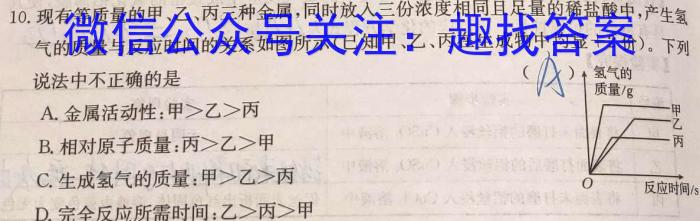 10. 现有等质量的甲、乙、丙三种金属,同时放入三份浓度相同且足量的稀盐酸中,产生氢
气的质量与反应时间的关系如图所示(已知甲、乙、丙在生成物中均显 价)。下列
微信公众号关注:趣找答案
说法中不正确的是 ( A )
A. 金属活动性:甲>乙>丙
B. 相对原子质量:丙>乙>甲
C. 生成氢气的质量:甲<乙>丙
D. 完全反应所需时间:乙>丙>甲
氢气的
质量/g
甲
乙
丙
O
反应时间/s